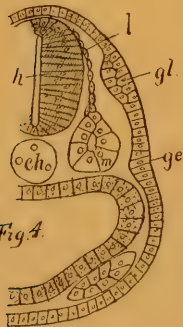 l
h
gl.
ch
m
ge
Fig. 4.